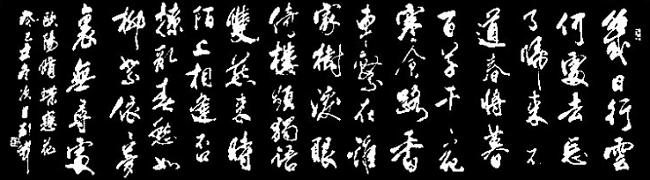 幾日行雲
何處去忘
了歸來不
道春將暮
百草千花
寒食路香
車繫在誰
家樹淚眼
倚樓頻獨語
雙燕來時
陌上相逢否
撩亂春愁如
柳絮依〻夢
裏無尋處
歐陽脩蝶戀花
癸巳